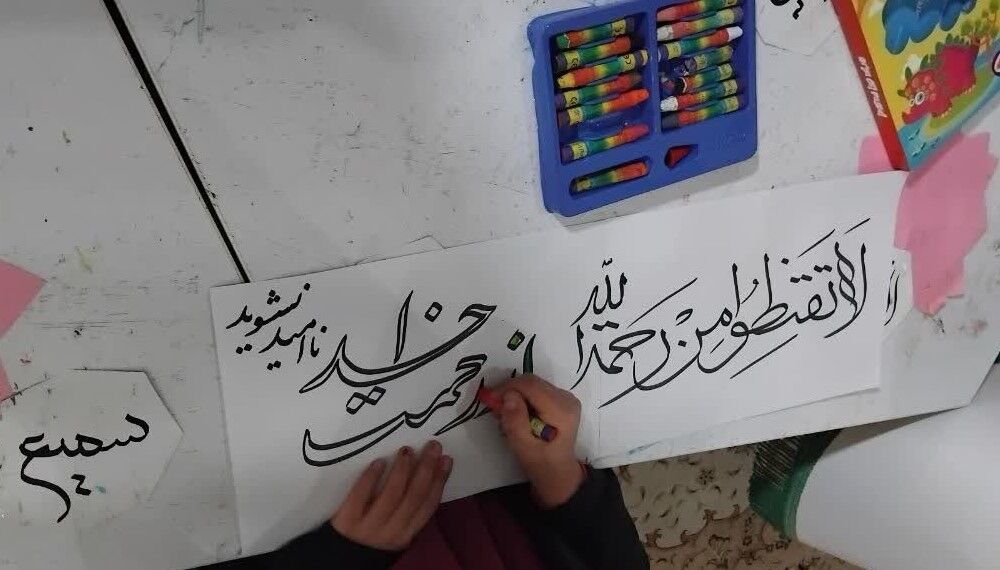 لَا تَقنَطُوا مِنْ رَحمة اللّه
از رحمت
خدا
ناامید نشوید
سمیع